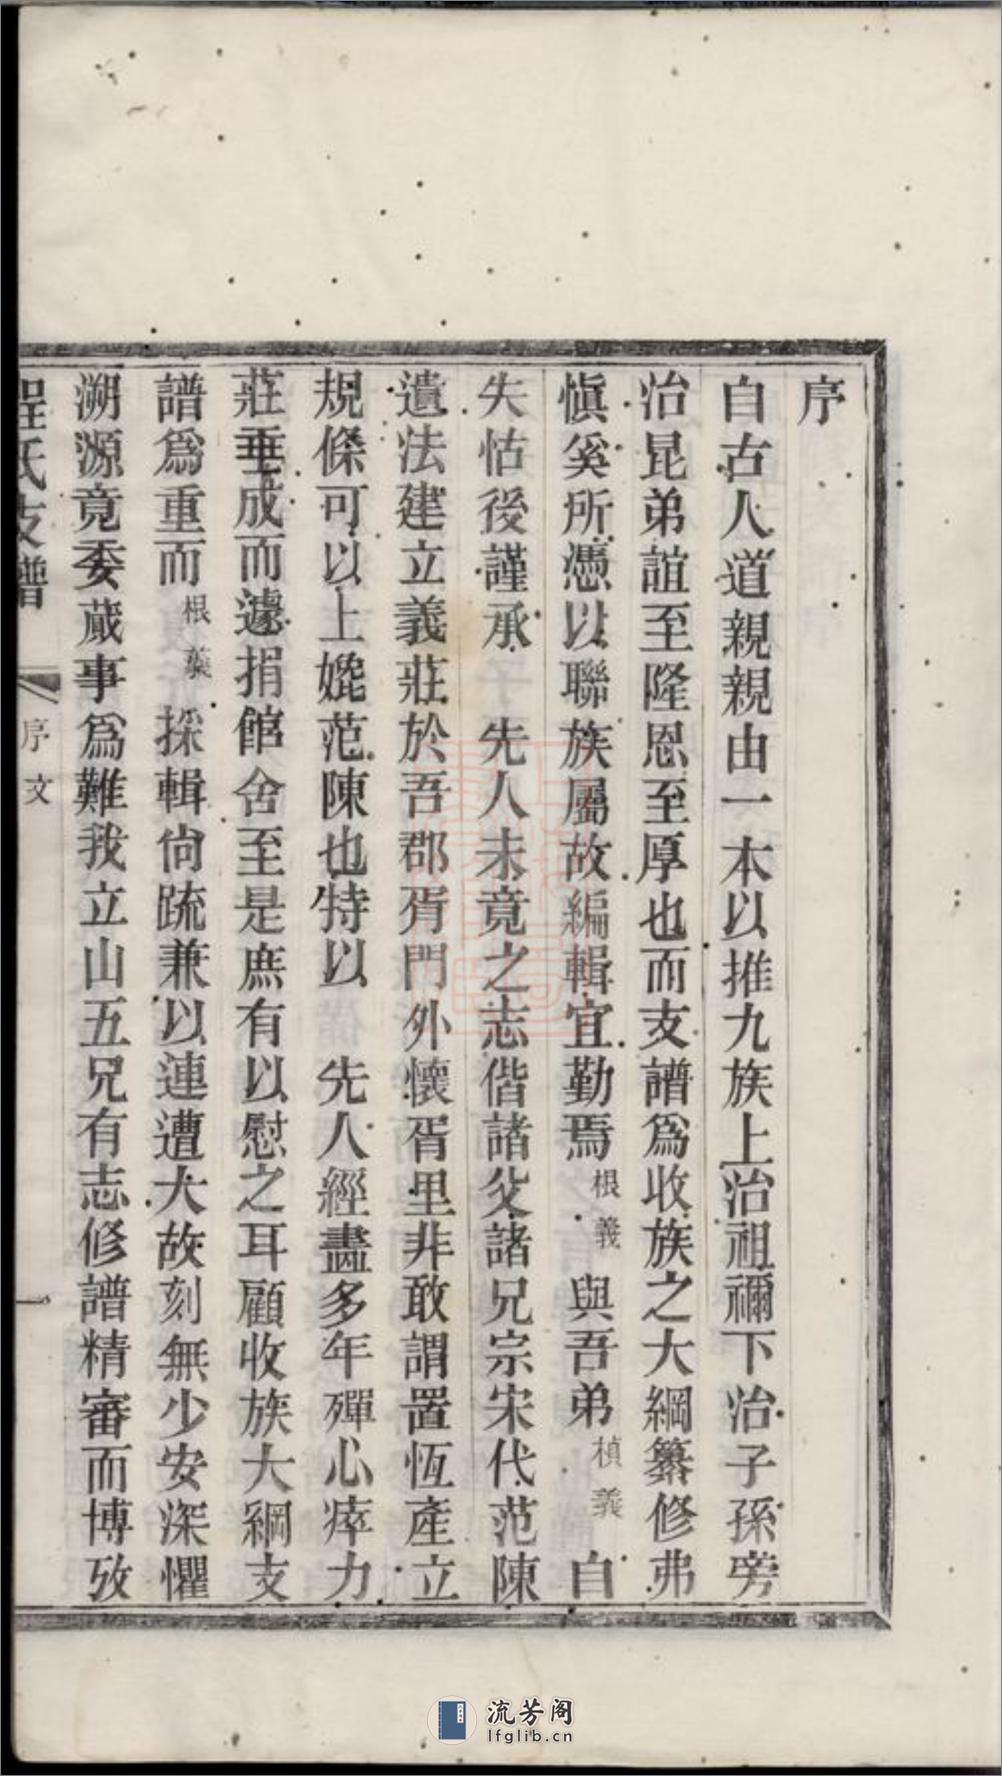 序
自古人道親親由一本以推九族上治祖禰下治子孫旁
治昆弟誼至隆恩至厚也而支譜爲收族之大綱纂修弗
愼奚所憑以聯族屬故編輯宜勤焉根義與吾弟楨義自
失怙後謹承 先人未竟之志偕諸父諸兄宗宋代范陳
遺法建立義莊於吾郡胥門外懷胥里非敢謂置恆產立
規條可以上媲范陳也特以 先人經畫多年殫心瘁力
莊垂成而遽捐館舍至是庶有以慰之耳顧收族大綱支
譜爲重而根義採輯尙疏兼以連遭大故刻無少安深懼
溯源竟委蕆事爲難我立山五兄有志修譜精審而博攷
程氏支譜 序文 一
流芳阁
lfglib.cn